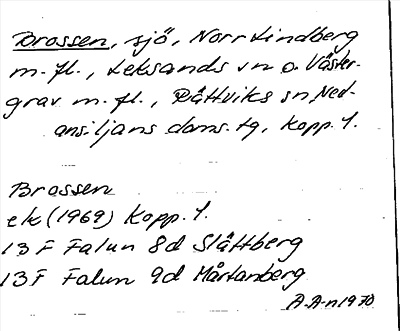 Brossen, sjö, Norr Lindberg
m. fl., Leksands sn o. Väster-
grav m. fl., Rättviks sn, Ned-
ansiljans doms. tg, Kopp. l.
Brossen
ek (1969) Kopp. l.
13 F Falun 8d Slättberg
13 F Falun 9d Mårtanberg
A.A-n 1970